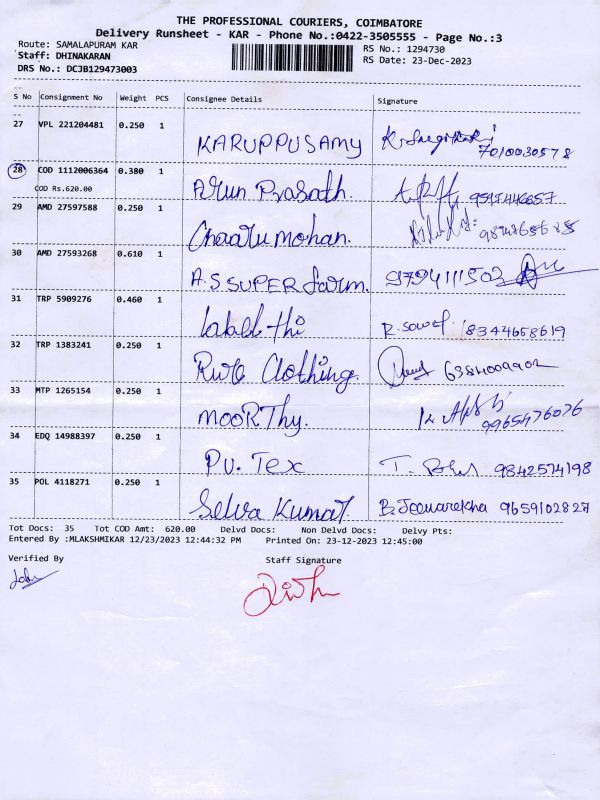 THE PROFESSIONAL COURIERS, COIMBATORE
Delivery Runsheet - KAR - Phone No.:0422-3505555 - Page No.:3
Route: SAMALAPURAM KAR RS No.: 1294730
Staff: DHINAKARAN RS Date: 23-Dec-2023
DRS No.: DCJB129473003
S No Consignment No Weight PCS Consignee Details Signature
27 VPL 221204481 0.250 1 KARUPPUSAMY 7010030578
28 COD 1112006364 0.380 1 Arun Prasath
COD Rs.620.00
29 AMD 27597588 0.250 1 Chaarumohan.
30 AMD 27593268 0.610 1 A.S SUPER farm. 9794111503
31 TRP 5909276 0.460 1 8344658619
32 TRP 1383241 0.250 1 Clothing.
33 MTP 1265154 0.250 1 MOORThy.
34 EDQ 14988397 0.250 1 PU. Tex 9842574198
35 POL 4118271 0.250 1 Selva Kumar. 9659102827
Tot Docs: 35 Tot COD Amt: 620.00 Delvd Docs: Non Delvd Docs: Delvy Pts:
Entered By :MLAKSHMIKAR 12/23/2023 12:44:32 PM Printed On: 23-12-2023 12:45:00
Verified By Staff Signature